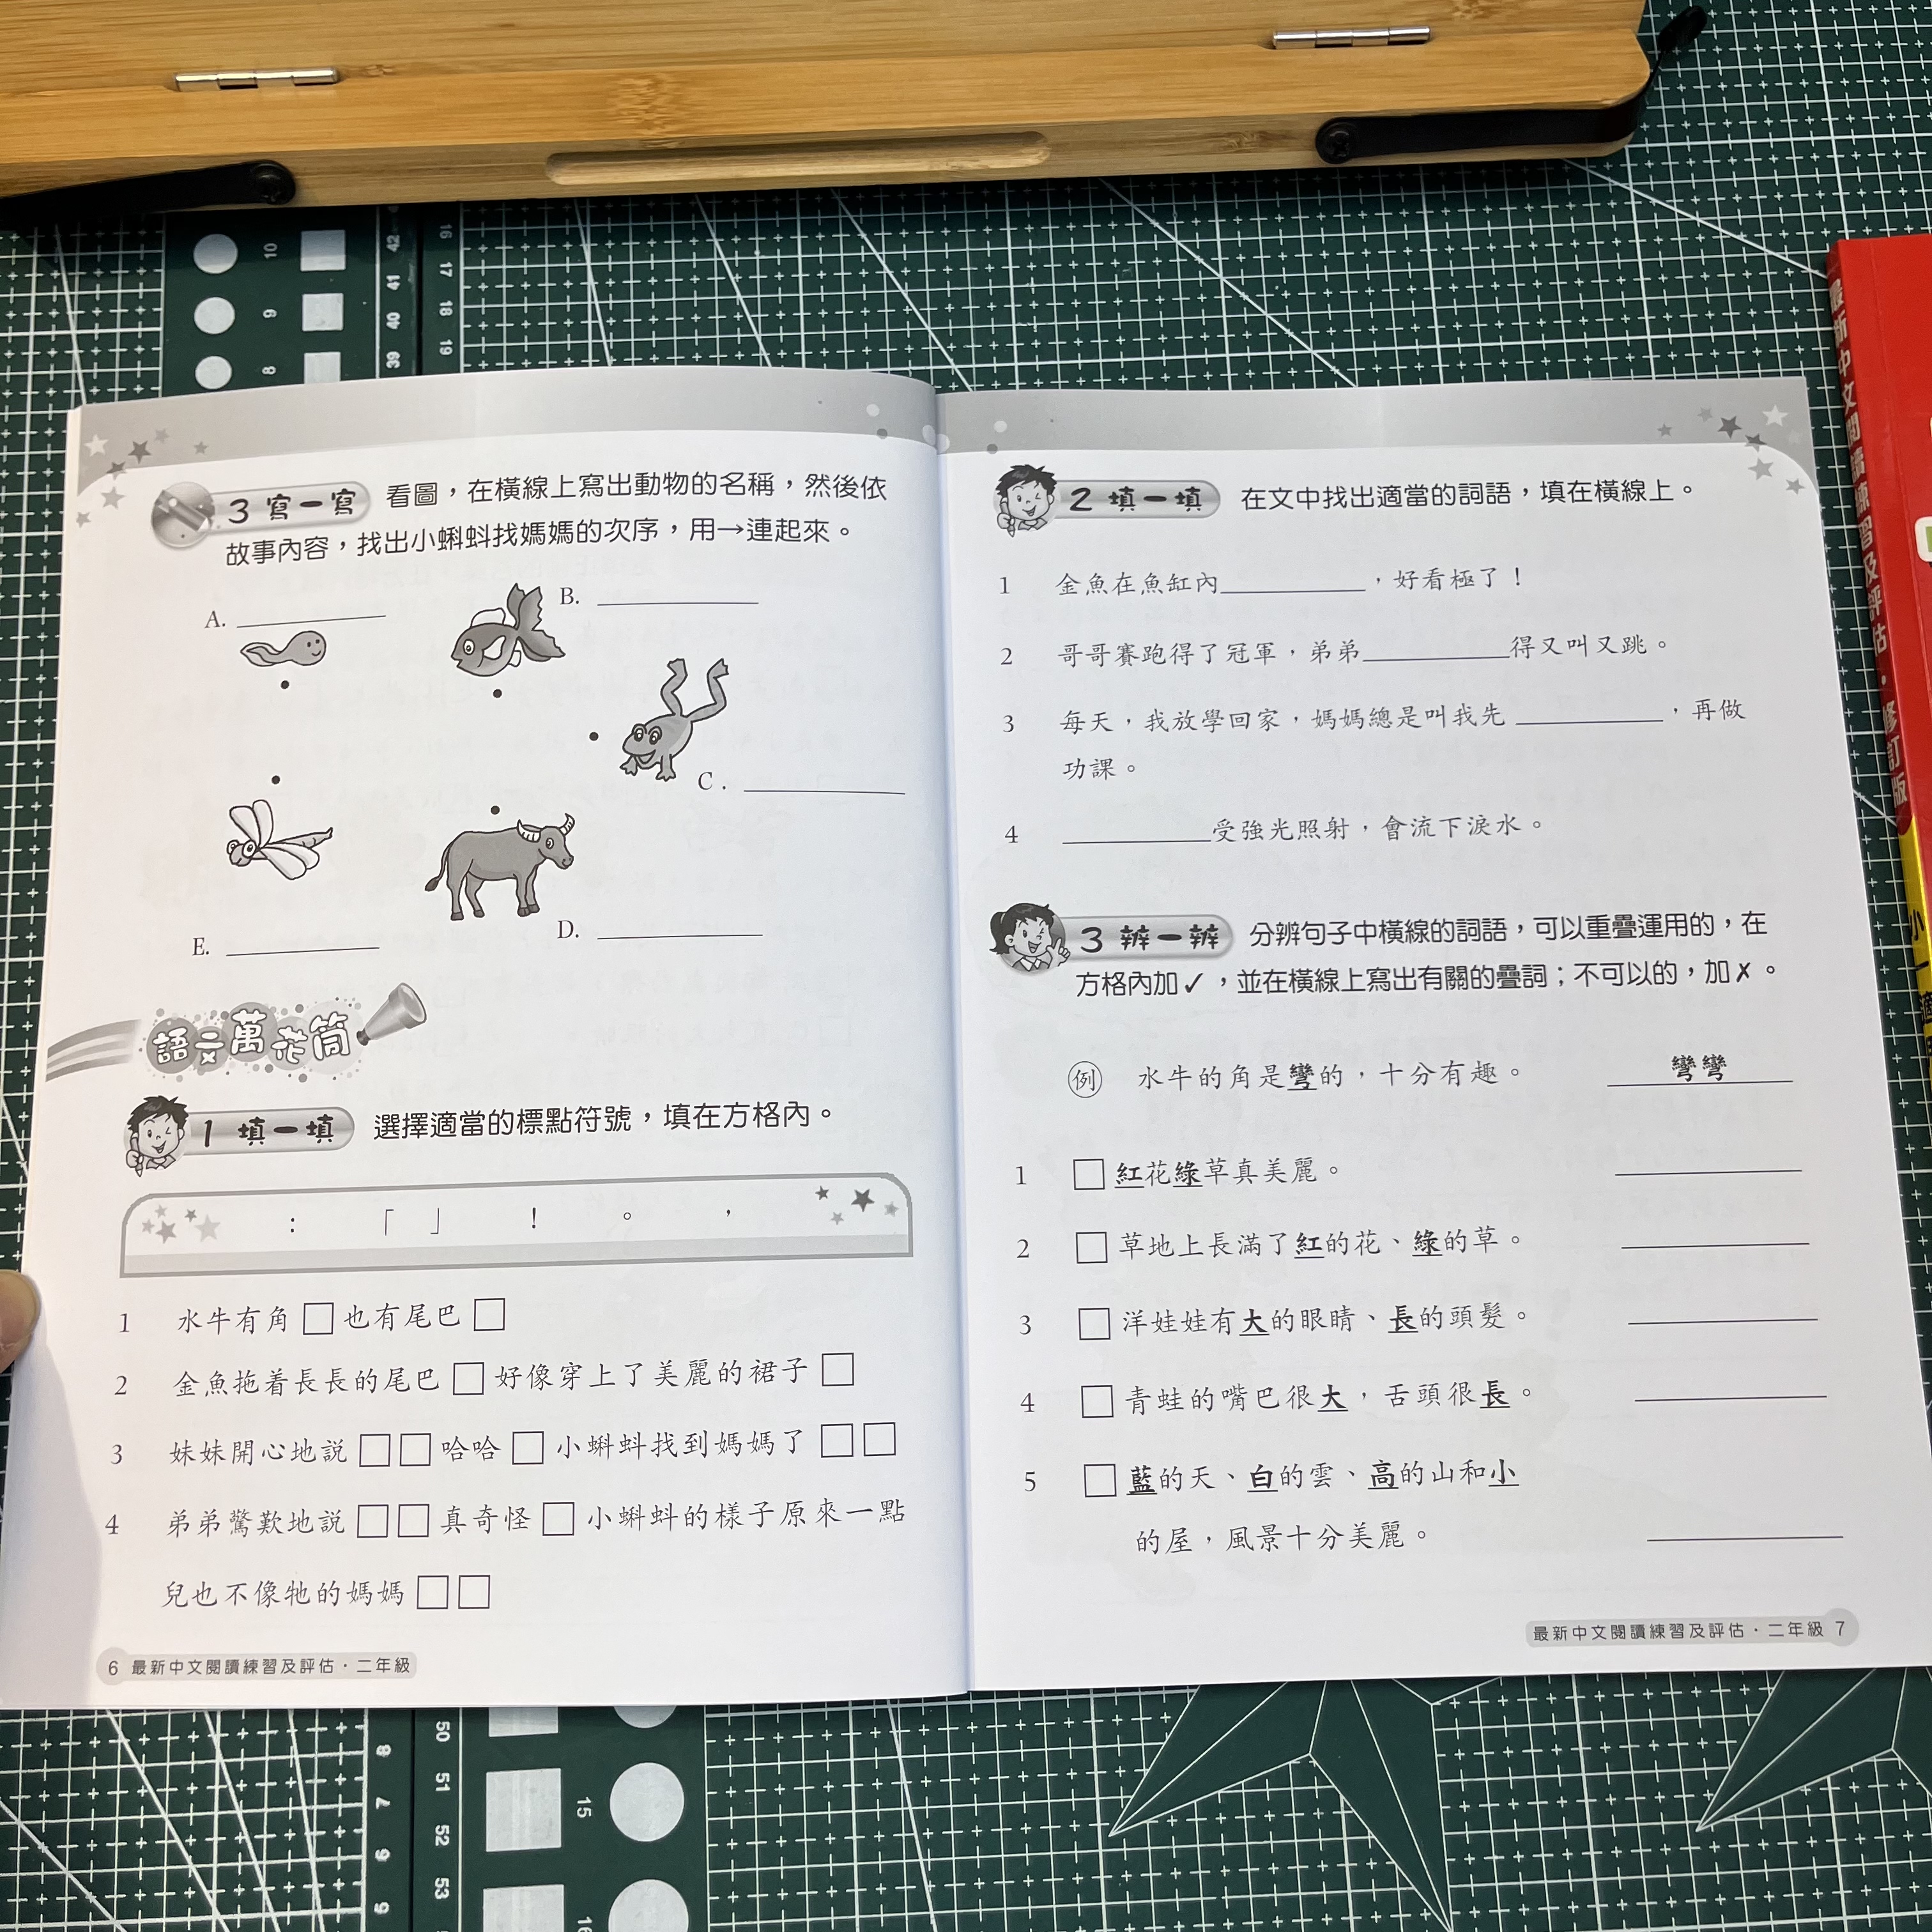 10
9
8
42
41
40
39
16
17
18
19
3 寫一寫 看圖，在橫線上寫出動物的名稱，然後依
故事內容，找出小蝌蚪找媽媽的次序，用→連起來。
A. ________
B. ________
C. ________
D. ________
E. ________
語文萬花筒
1 填一填 選擇適當的標點符號，填在方格內。
： 「 」 ！ 。 ，
1 水牛有角□也有尾巴□
2 金魚拖着長長的尾巴□好像穿上了美麗的裙子□
3 妹妹開心地説□□哈哈□小蝌蚪找到媽媽了□□
4 弟弟驚歎地説□□真奇怪□小蝌蚪的樣子原來一點
兒也不像牠的媽媽□□
6 最新中文閱讀練習及評估·二年級
2 填一填 在文中找出適當的詞語，填在橫線上。
1 金魚在魚缸內________，好看極了！
2 哥哥賽跑得了冠軍，弟弟________得又叫又跳。
3 每天，我放學回家，媽媽總是叫我先________，再做
功課。
4 ________受強光照射，會流下淚水。
3 辨一辨 分辨句子中橫線的詞語，可以重疊運用的，在
方格內加✓，並在橫線上寫出有關的疊詞；不可以的，加✗。
例 水牛的角是彎的，十分有趣。 彎彎
1 □紅花綠草真美麗。 ________
2 □草地上長滿了紅的花、綠的草。 ________
3 □洋娃娃有大的眼睛、長的頭髮。 ________
4 □青蛙的嘴巴很大，舌頭很長。 ________
5 □藍的天、白的雲、高的山和小
的屋，風景十分美麗。 ________
最新中文閱讀練習及評估·二年級 7
最新中文閱讀練習及評估·修訂版
小一
50
51
52
53
8
7
6
5
15